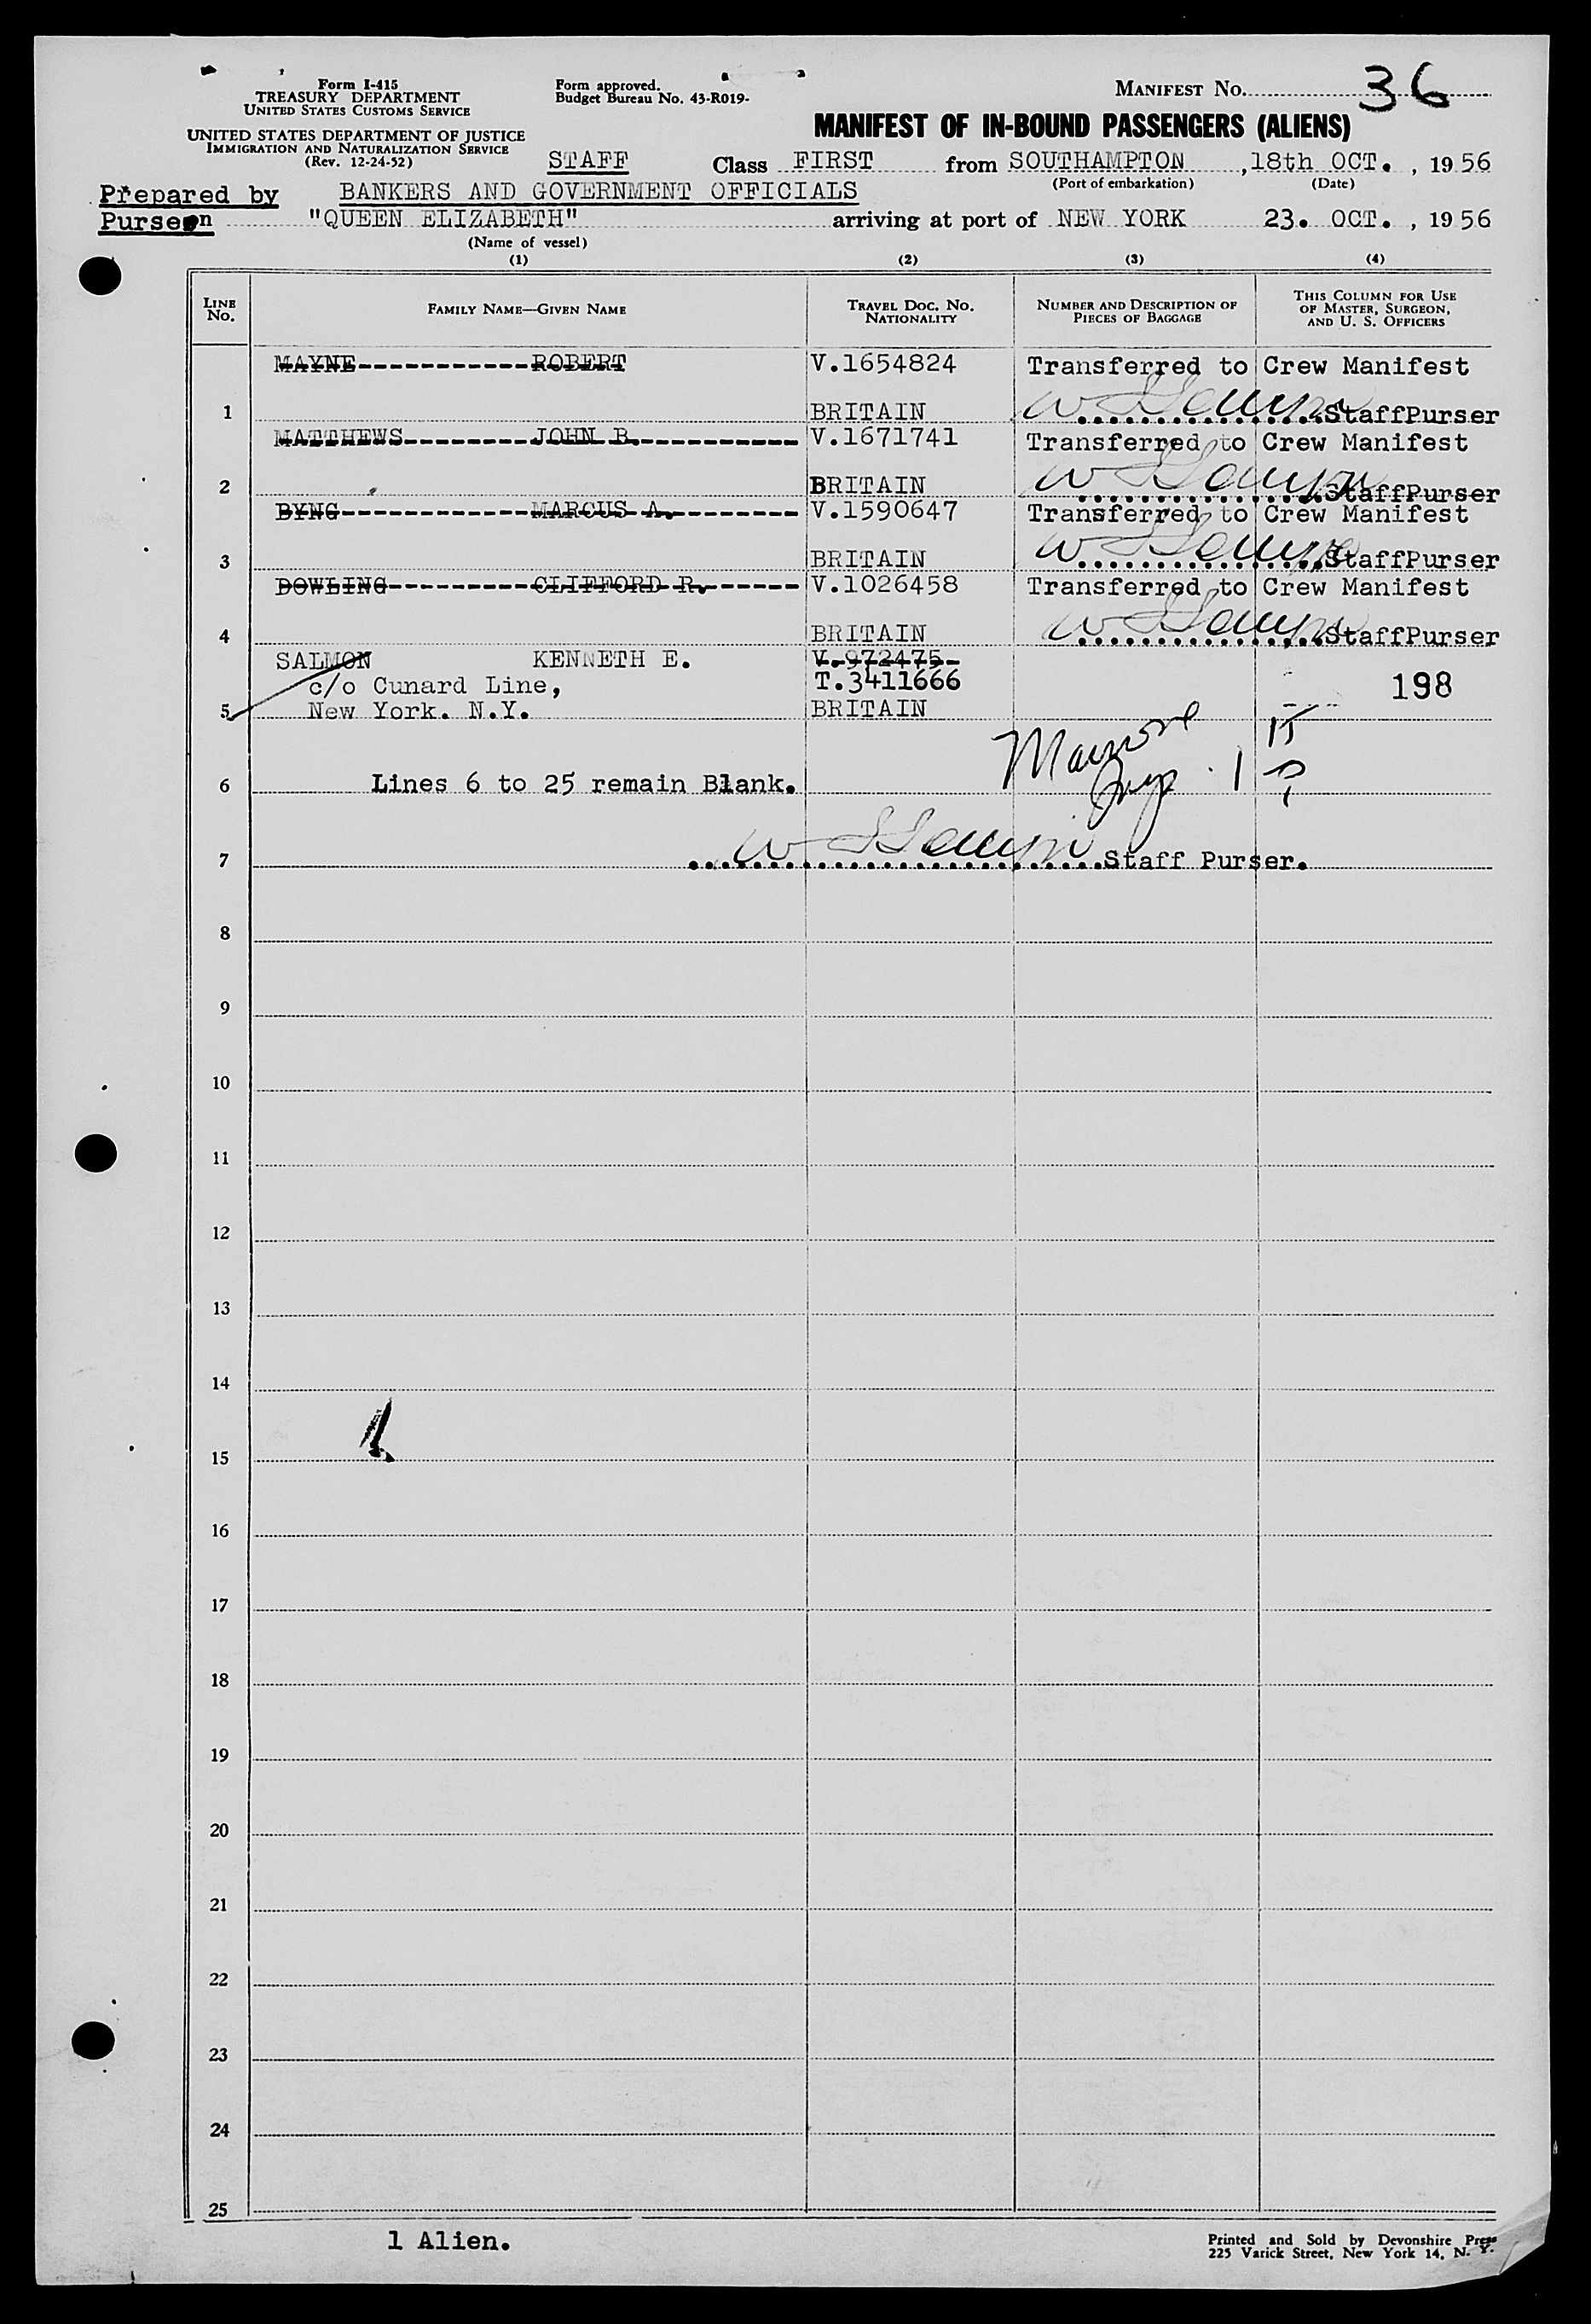 Form I-415
TREASURY DEPARTMENT
UNITED STATES CUSTOMS SERVICE
UNITED STATES DEPARTMENT OF JUSTICE
IMMIGRATION AND NATURALIZATION SERVICE
(Rev. 12-24-52)
Form approved.
Budget Bureau No. 43-R019-
MANIFEST No. 36
MANIFEST OF IN-BOUND PASSENGERS (ALIENS)
STAFF Class FIRST from SOUTHAMPTON, 18th OCT., 1956
(Port of embarkation) (Date)
Prepared by BANKERS AND GOVERNMENT OFFICIALS
Purser on "QUEEN ELIZABETH" arriving at port of NEW YORK 23. OCT., 1956
(Name of vessel)
(1) (2) (3) (4)
LINE No. FAMILY NAME—GIVEN NAME TRAVEL DOC. NO. NATIONALITY NUMBER AND DESCRIPTION OF PIECES OF BAGGAGE THIS COLUMN FOR USE OF MASTER, SURGEON, AND U. S. OFFICERS
MAYNE ROBERT V.1654824 Transferred to Crew Manifest
1 BRITAIN StaffPurser
MATTHEWS JOHN B. V.1671741 Transferred to Crew Manifest
2 BRITAIN StaffPurser
BYNG MARCUS A. V.1590647 Transferred to Crew Manifest
3 BRITAIN StaffPurser
DOWLING CLIFFORD R. V.1026458 Transferred to Crew Manifest
4 BRITAIN StaffPurser
SALMON KENNETH E. V.972475
c/o Cunard Line, T.3411666 198
5 New York. N.Y. BRITAIN
6 Lines 6 to 25 remain Blank.
7 Staff Purser.
8
9
10
11
12
13
14
15
16
17
18
19
20
21
22
23
24
25
1 Alien.
Printed and Sold by Devonshire Press
225 Varick Street, New York 14, N. Y.